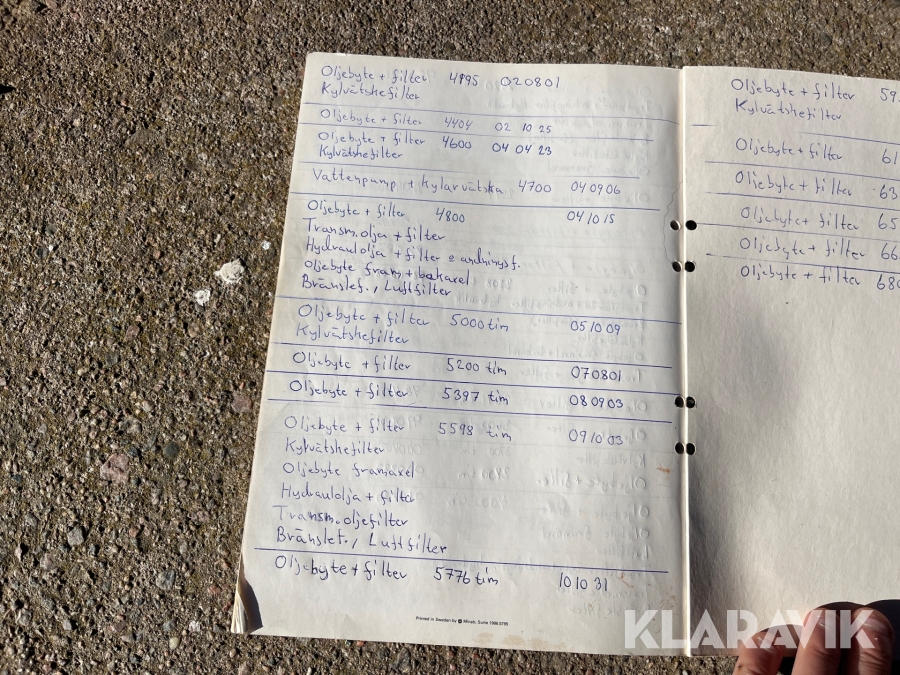 Oljebyte + filter 4195 020801
Kylvätskefilter
Oljebyte + filter 4404 02 10 25
Oljebyte + filter 4600 04 04 23
Kylvätskefilter
Vattenpump + Kylarvätska 4700 040906
Oljebyte + filter 4800 041015
Transm.olja + filter
Hydraulolja + filter o andningsf.
Oljebyte fram + bakaxel
Bränslef., Luftfilter
Oljebyte + filter 5000 tim 051009
Kylvätskefilter
Oljebyte + filter 5200 tim 070801
Oljebyte + filter 5397 tim 080903
Oljebyte + filter 5598 tim 091003
Kylvätskefilter
Oljebyte framaxel
Hydraulolja + filter
Transm.oljefilter
Bränslef., Luftfilter
Oljebyte + filter 5776 tim 101031
Printed in Sweden by Minab, Surte 1986 5795
Oljebyte + filter 59
Kylvätskefilter
Oljebyte + filter 61
Oljebyte + filter 63
Oljebyte + filter 65
Oljebyte + filter 66
Oljebyte + filter 680
KLARAVIK